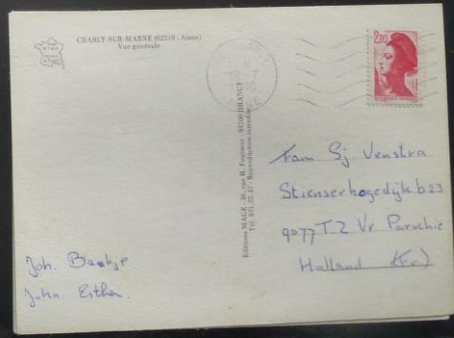 CHARLY-SUR-MARNE (02310 - Aisne)
Vue générale
2,20
Editions MAGE - 36, rue R. Fouquer - 93700 DRANCY
Tél. 831.32.47 - Reproduction interdite
Fam Sj. Venstra
Stienserhogedijk b23
9077 TZ Vr. Parochie
Holland (Fr)
Joh. Baukje
John Esther.